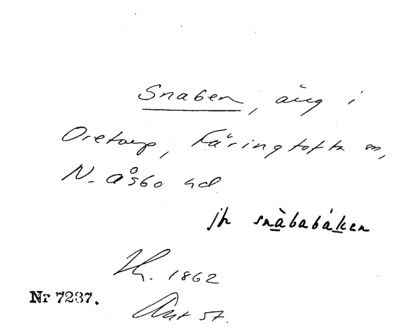 Snaben, äng i
Oretorp, Färingtofta sn,
N. Åsbo hd
jfr snàbabáken
Hh. 1862
Nr 7237.
Ant st.